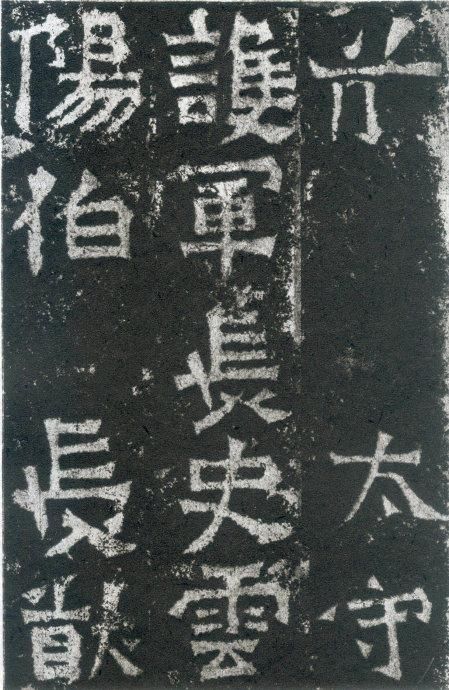 太守
護軍長史雲
陽伯 長猷